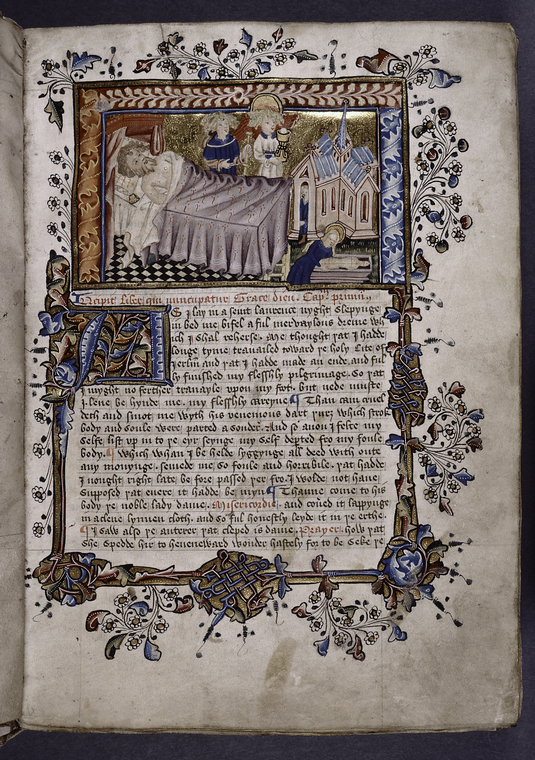 Incipit liber qui nuncupatur Grace dieu. Capm primum
As I lay in a seint laurence nyght slepynge
in bed me bifel a ful merveylous dreme wh
ich I shal reherse. Me thought þat I hadde
longe tyme travailed toward þe holy Cite of
Jerlm and þat I hadde made an ende and ful
ly finished my flesshly pilgrimage. So þat
I myght no ferther travayle upon my fot. but nede muste
I leve be hynde me. my flesshly careyne. Than cam cruel
deth and smot me wyth his venemous dart which strok
body and soule were parted a sonder. And so anon I felte my
self lift up in to þe eyr seynge my self depted fro my foule
body. Which whan I be helde lyggynge all deed with oute
any moevynge. semede me so foule and horrible. þat hadde
I nought right late be fore passed þer fro. I wolde not have
supposed þat evere it hadde be myn. Thanne come to his
body þe noble lady dame. Misericordie. and coverd it lappynge
in a clene lynnen cloth. and so ful honestly leyde it in þe erthe.
I saw also þe auterer þat cleped is dame. Prayere. how þat
she spedde hir to heueneward wonder hastely for to be seke þe